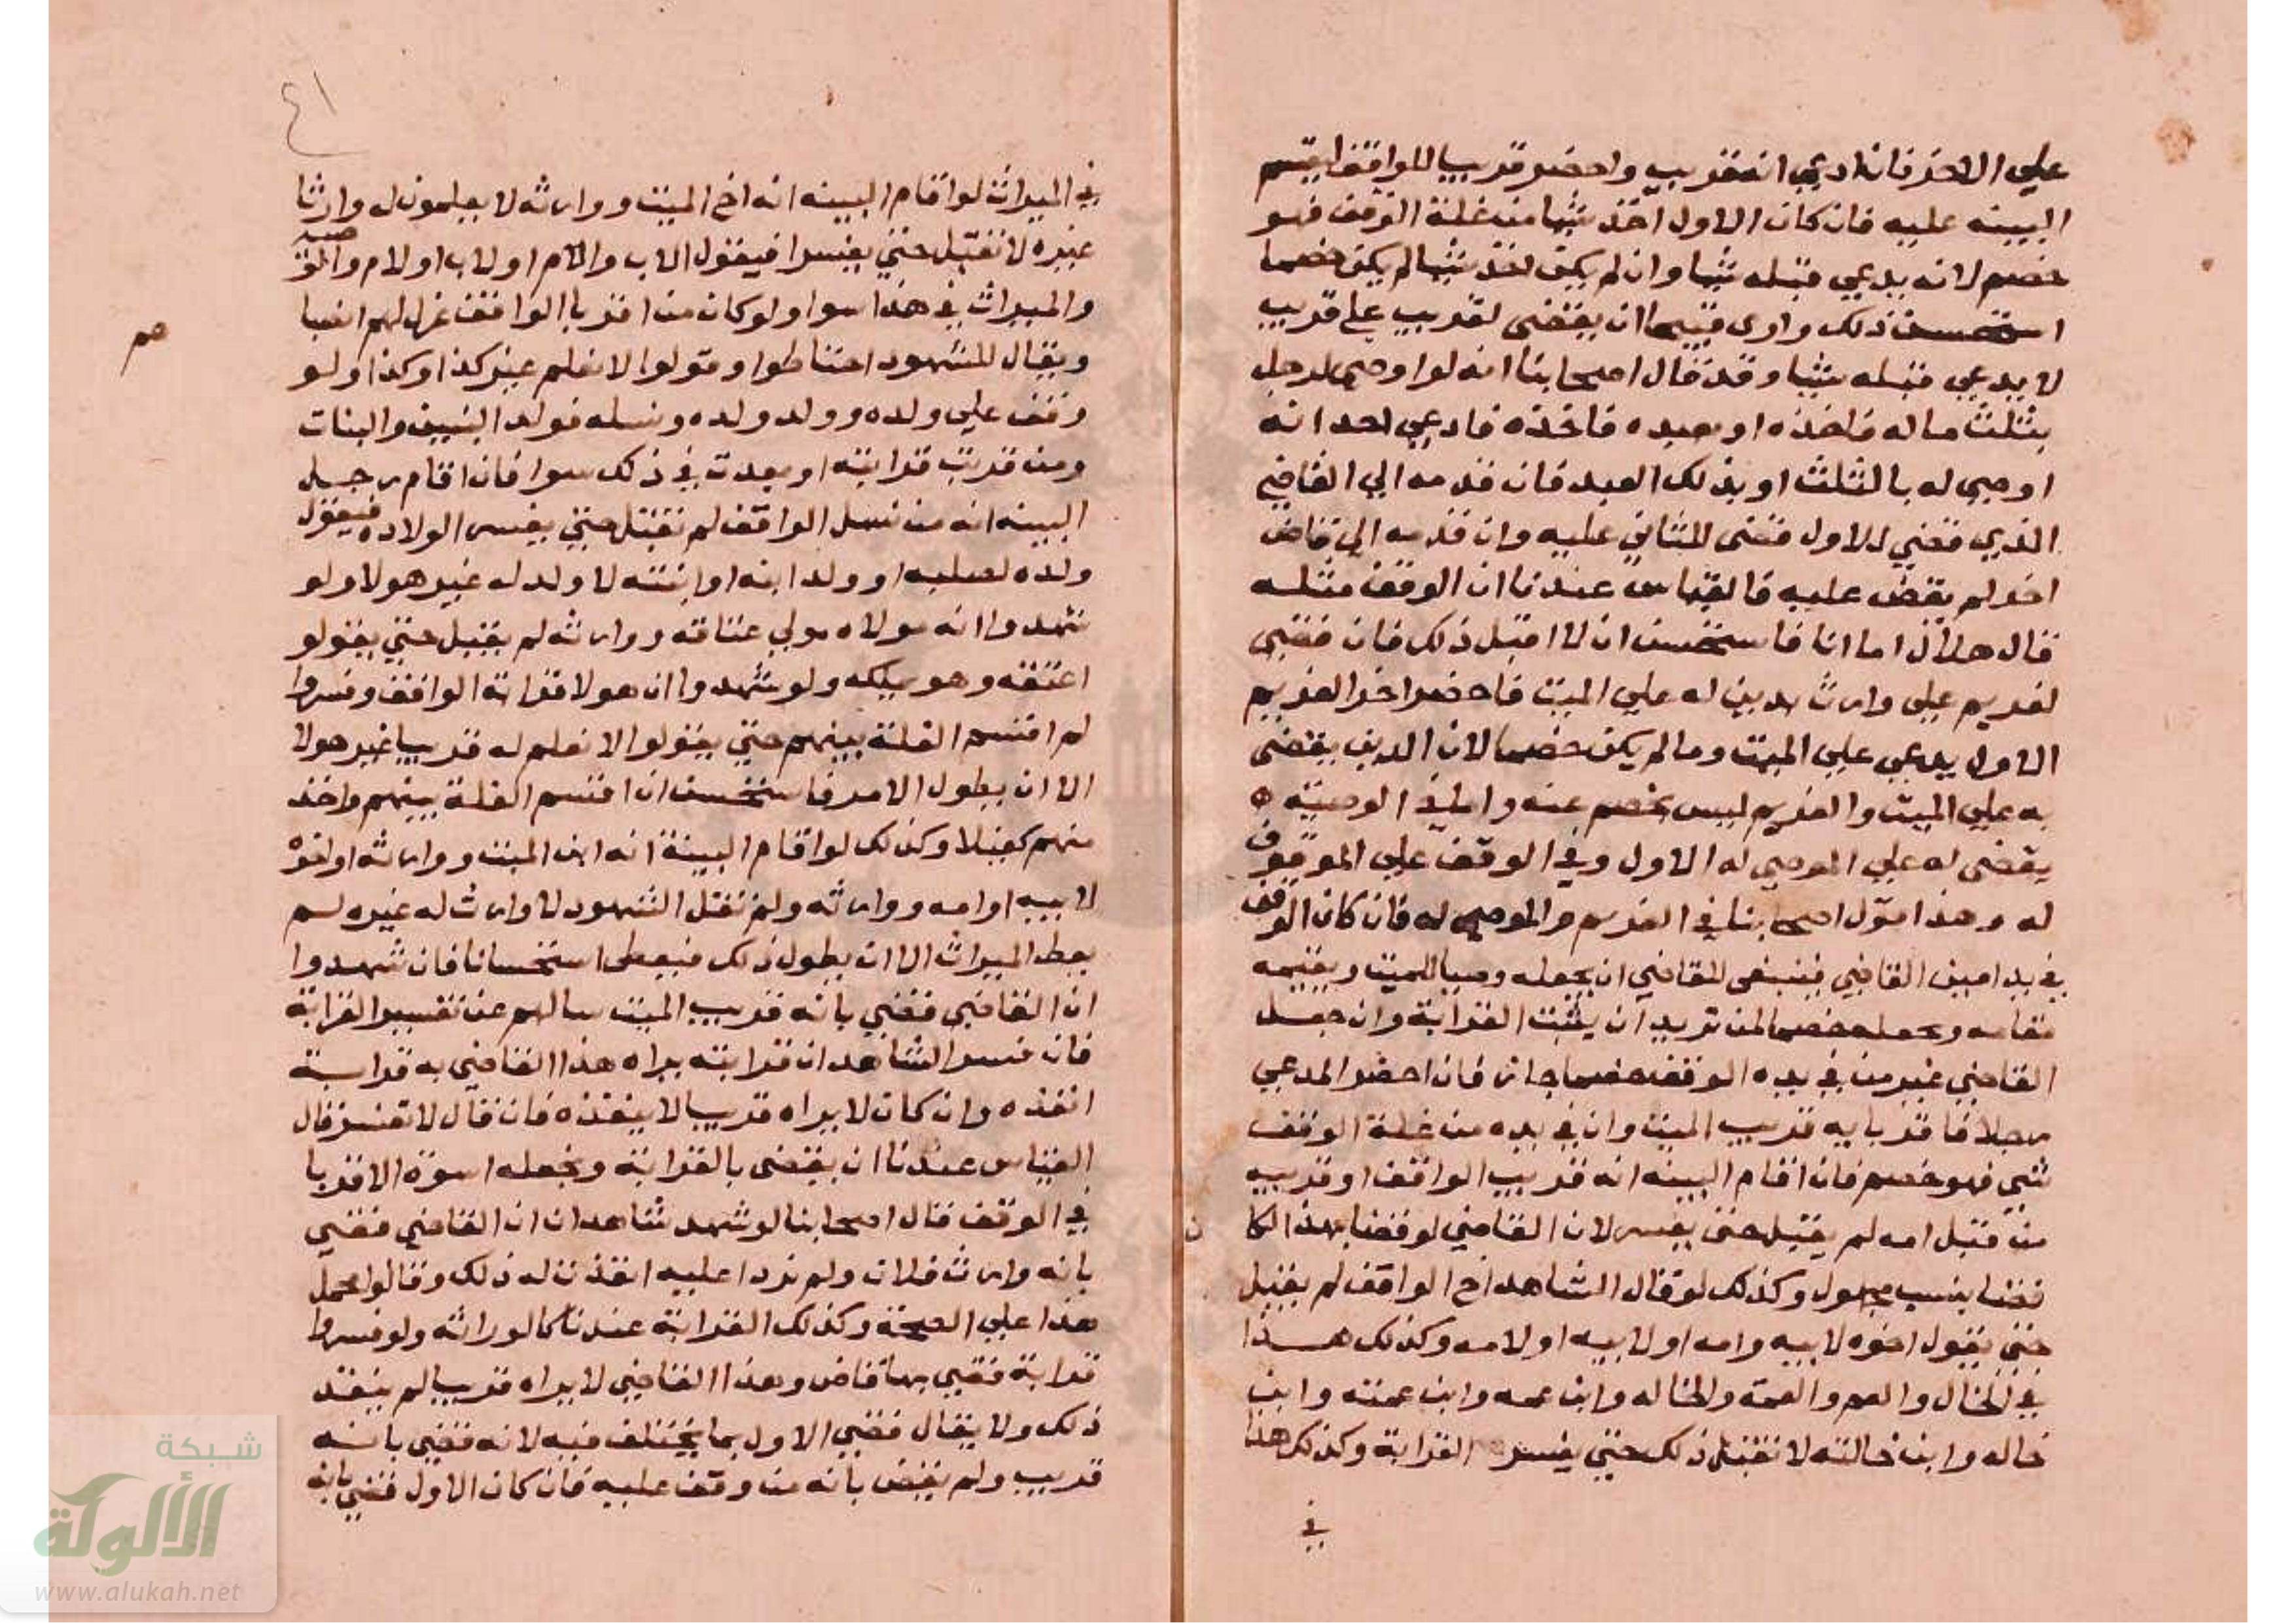 علي الاخر فان ادعي انه قريب واحضر قريبا للواقف ليقيم
البينه عليه فان كان الاول اخذ شيا من غلة الوقف فهو
خصم لانه يدعي قبله شيا وان لم يكن اخذ شيا لم يكن خصما
استحسن ذلك واري قبيحا ان يقضي لقريب علي قريب
لا يدعي قبله شيا وقد قال اصحابنا انه لو اوصي لرجل
بثلث ماله فاخذه او بعبده فاخذه فادعي احد انه
اوصي له بالثلث او بذلك العبد فان قدمه الي القاضي
الذي قضي للاول قضي للثاني عليه وان قدمه الي قاض
اخر لم يقض عليه فالقياس عندنا ان الوقف مثله
قال هلال اما انا فاستحسن ان لا اقبل ذلك فان قضي
لغريم علي وارث بدين له علي الميت فاحضر اخر الغريم
الاول يدعي علي الميت وما لم يكن خصما لان الدين يقضي
به علي الميت والغريم ليس بخصم عنه واما في الوصية
يقضي له علي الموصي له الاول وفي الوقف علي الموقوف
له وهذا قول اصحابنا في الغريم والموصي له فان كان الوقف
في يد امين القاضي فينبغي للقاضي ان يجعله وصيا للميت ويقيمه
مقامه ويجعله خصما لمن يريد ان يثبت القرابة وان جعل
القاضي غير من في يده الوقف خصما جاز فان احضر المدعي
رجلا فاقر بانه قريب الميت وان في يده من غلة الوقف
شي فهو خصم فان اقام البينه انه قريب الواقف او قريبه
من قبل امه لم يقبل حتي يفسر لان القاضي لو قضا بهذا لكان
قضا بنسب مجهول وكذلك لو قال الشاهد اخ الواقف لم يقبل
حتي يقول اخوه لابيه وامه او لابيه او لامه وكذلك هذا
في الخال والعم والعمة والخاله وابن عمه وابن عمته وابن
خاله وابن خالته لا تقبل ذلك حتي يفسر القرابة وكذلك هذا
في
٤١
في الميراث لو اقام البينه انه اخ الميت ووارثه لا يعلمون له وارثا
غيره لا تقبل حتي يفسروا فيقول لاب والام او لاب او لام والوصيه
والميراث في هذا سوا ولو كان من اقربا الواقف عزل لهم انصبا
ويقال للشهود احتاطوا وقولوا لا نعلم غير كذا وكذا ولو
صم
وقف علي ولده وولد ولده ونسله فولد البنين والبنات
ومن قربت قرابته او بعدت في ذلك سوا فان اقام رجل
البينه انه من نسل الواقف لم تقبل حتي يفسر الولاده فيقول
ولده لصلبه او ولد ابنه او ابنته لا ولد له غير هولا ولو
شهدوا انه مولاه مولي عتاقه ووارثه لم يقبل حتي يقولو
اعتقه وهو يملكه ولو شهدوا ان هولا قرابة الواقف وفسروا
لم اقسم الغلة بينهم حتي يقولوا لا نعلم له قريبا غير هولا
الا ان يطول الامر فاستحسن ان اقسم الغلة بينهم واخذ
منهم كفيلا وكذلك لو اقام البينة انه ابن الميت ووارثه او اخوه
لابيه او امه ووارثه ولم تقل الشهود لا وارث له غيره لم
يعط الميراث الا ان يطول ذلك فيعطي استحسانا فان شهدوا
ان القاضي قضي بانه قريب الميت سالهم عن تفسير القرابة
فان فسر الشاهدان قرابته يراه هذا القاضي به قرابة
انفذه وان كان لا يراه قريبا لا ينفذه فان قال لا تفسر قال
القياس عندنا ان يقضي بالقرابة ويجعله اسوة الاقربا
في الوقف قال اصحابنا لو شهد شاهدان ان القاضي قضي
بانه وارث فلان ولم نزدا عليه انفذت له ذلك وقالوا يحمل
هذا علي الصحة وكذلك القرابة عندنا كالوراثة ولو فسروا
قرابة قضي بها قاض وهذا القاضي لا يراه قريبا لم ينفذ
ذلك ولا يقال قضي الاول بما يختلف فيه لانه قضي بانه
قريب ولم يقض بانه من وقف عليه فان كان الاول قضي بانه
شبكة
الألولة
www.alukah.net